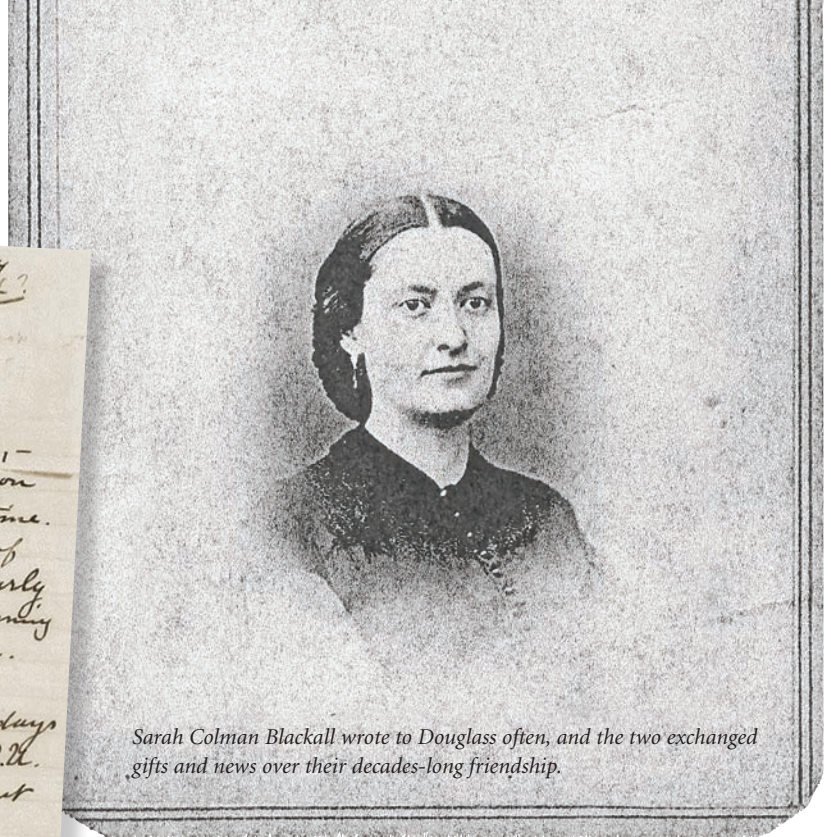 on
of
days
Sarah Colman Blackall wrote to Douglass often, and the two exchanged
gifts and news over their decades-long friendship.